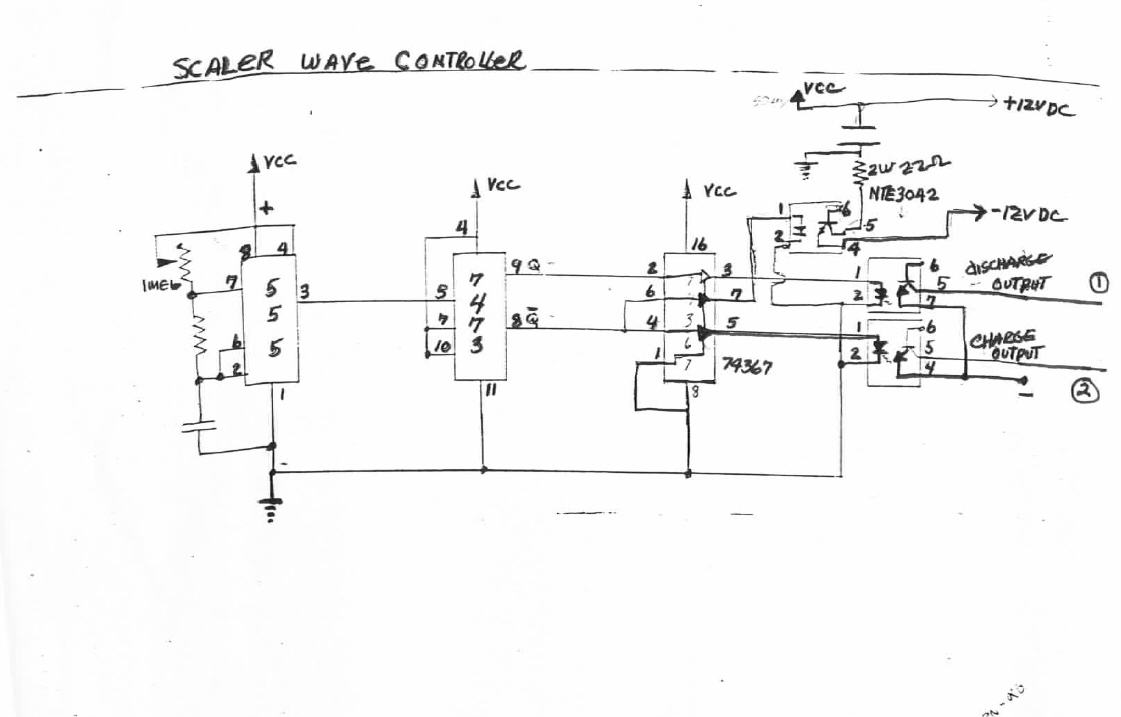 SCALER WAVE CONTROLLER
VCC
+12VDC
2W 22Ω
NTE3042
-12VDC
1
2
6
5
4
VCC
+
8
4
7
5
5
5
3
6
2
1
1MEG
VCC
4
5
7
10
7
4
7
3
9 Q
8 Q̅
11
VCC
16
2
6
4
1
3
7
5
3
6
7
8
74367
1
2
6
5
7
DISCHARGE
OUTPUT
①
1
2
6
5
4
CHARGE
OUTPUT
②
-
-